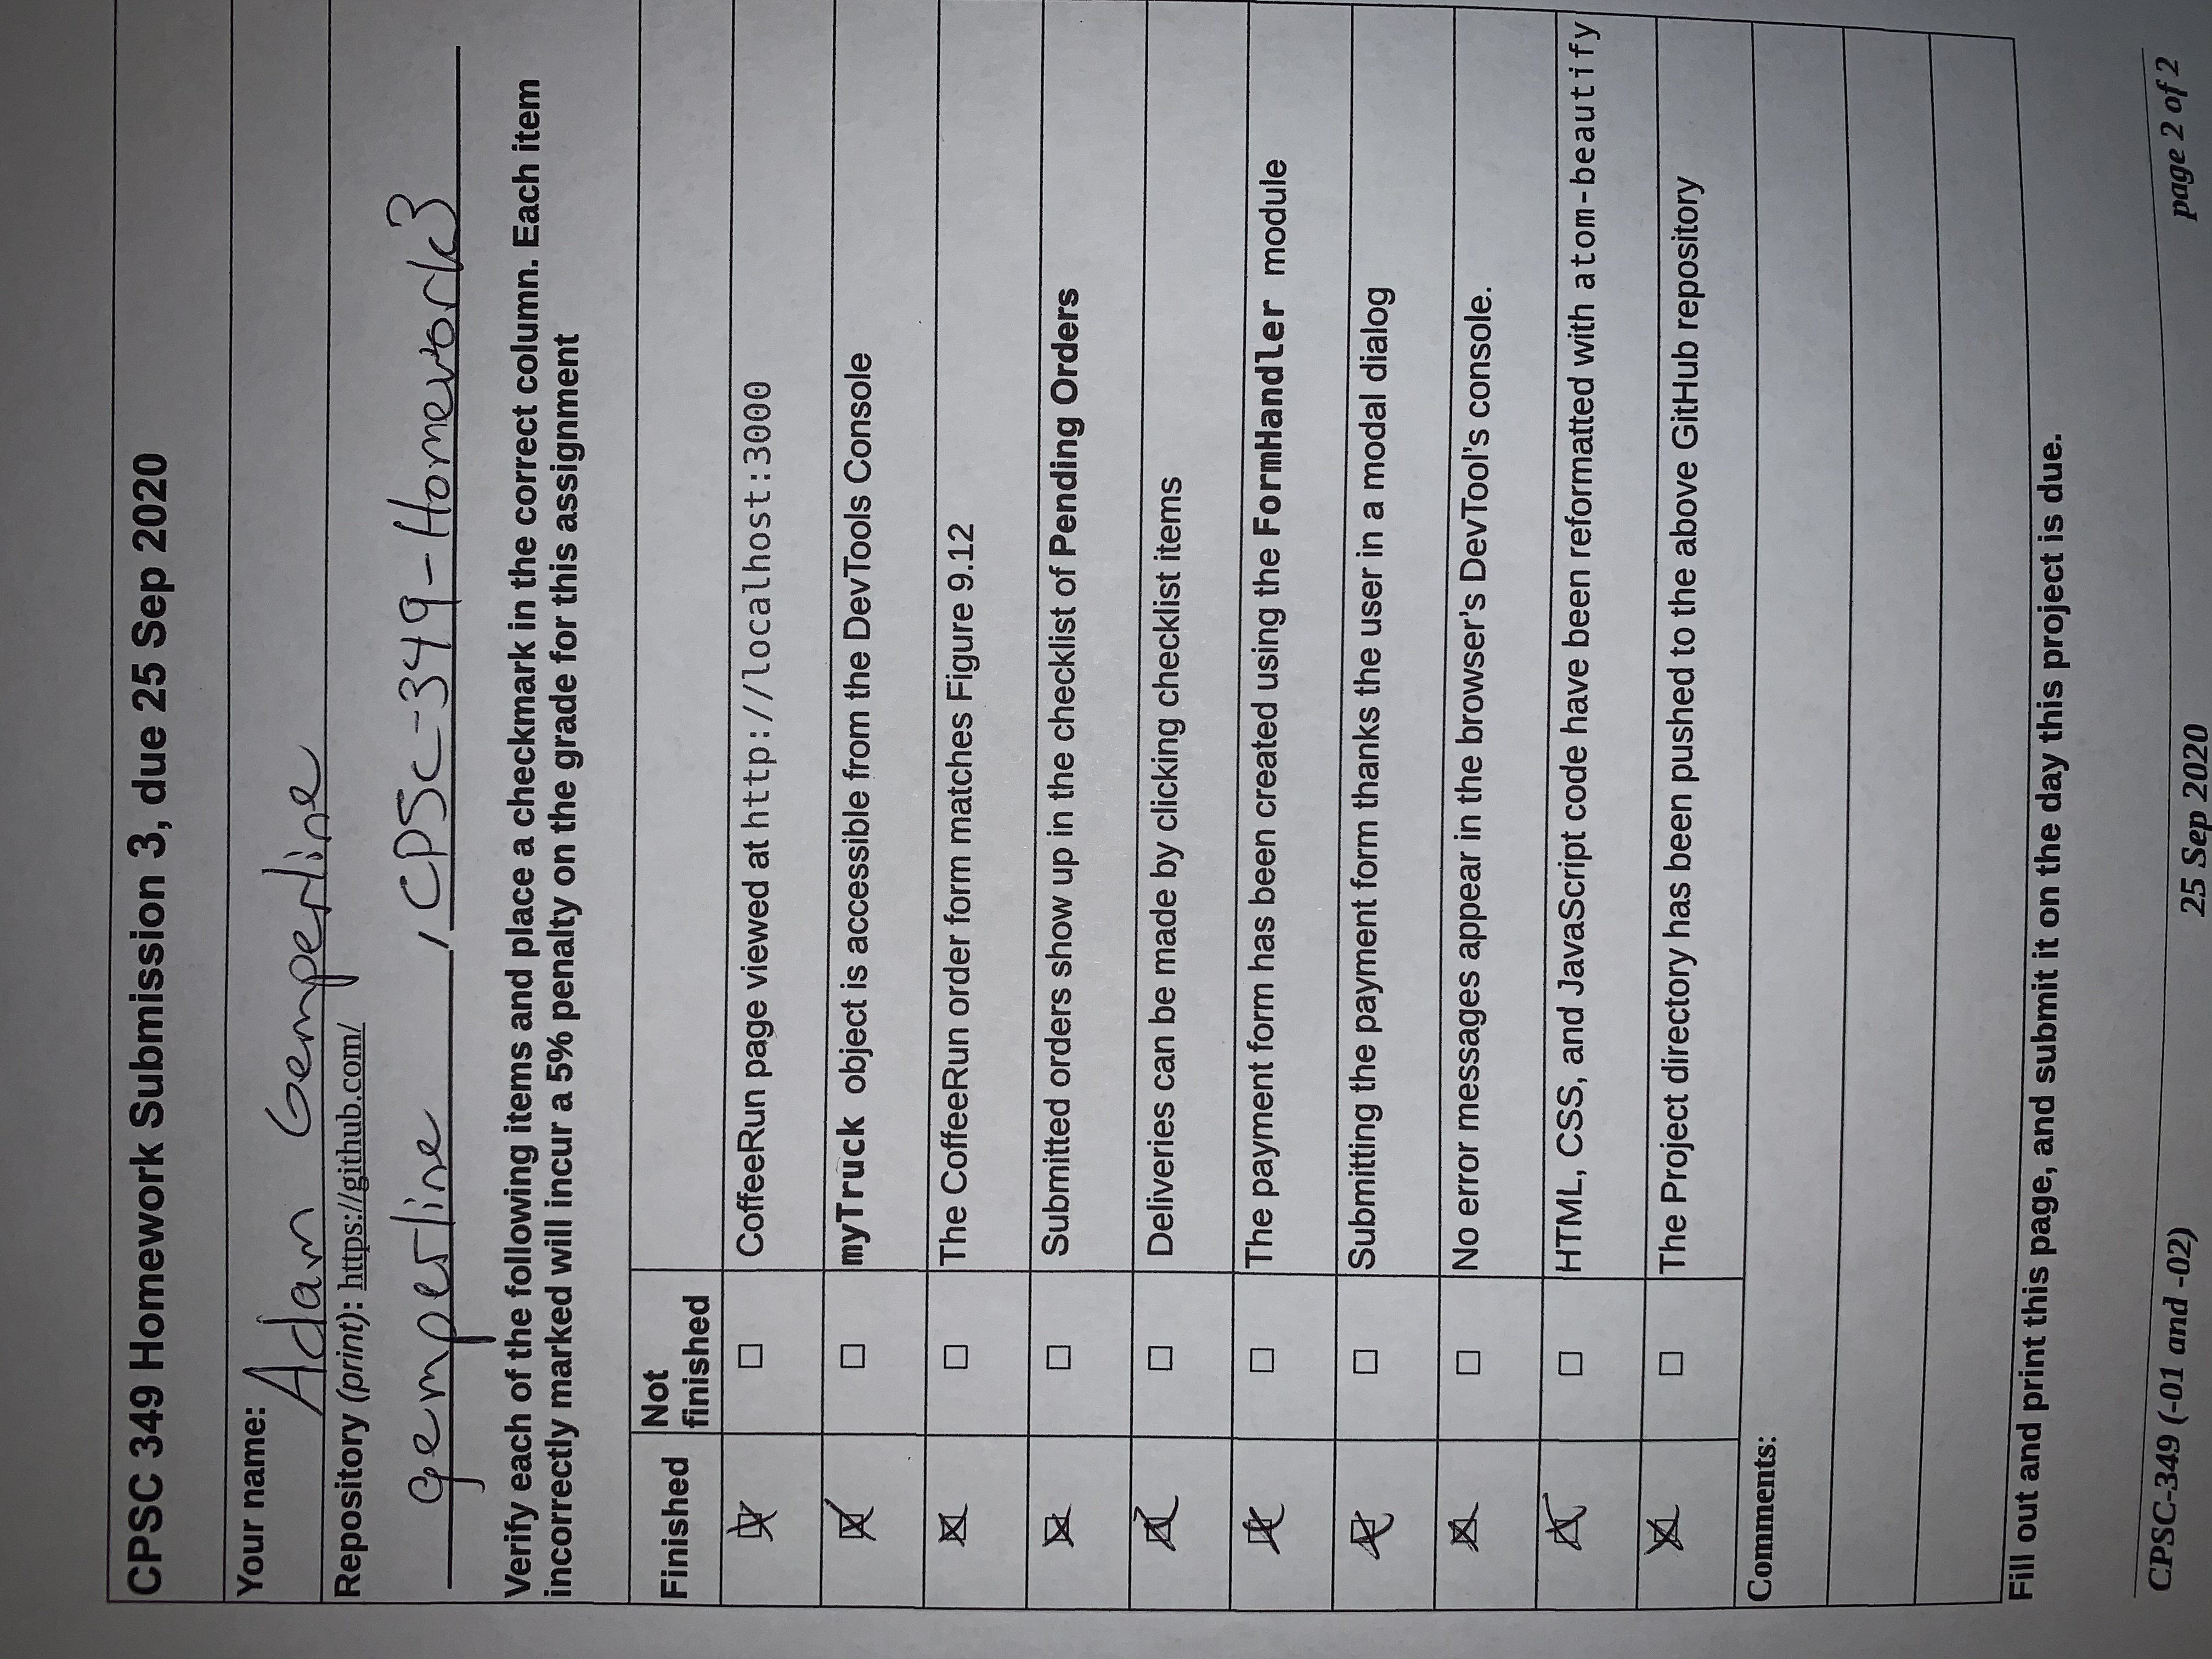 CPSC 349 Homework Submission 3, due 25 Sep 2020
Your name: Adam Gemperline
Repository (print): https://github.com/
gemperline / CPSC-349-Homework3
Verify each of the following items and place a checkmark in the correct column. Each item
incorrectly marked will incur a 5% penalty on the grade for this assignment
Finished Not finished
CoffeeRun page viewed at http://localhost:3000
myTruck object is accessible from the DevTools Console
The CoffeeRun order form matches Figure 9.12
Submitted orders show up in the checklist of Pending Orders
Deliveries can be made by clicking checklist items
The payment form has been created using the FormHandler module
Submitting the payment form thanks the user in a modal dialog
No error messages appear in the browser's DevTool's console.
HTML, CSS, and JavaScript code have been reformatted with atom-beautify
The Project directory has been pushed to the above GitHub repository
Comments:
Fill out and print this page, and submit it on the day this project is due.
CPSC-349 (-01 and -02) 25 Sep 2020 page 2 of 2